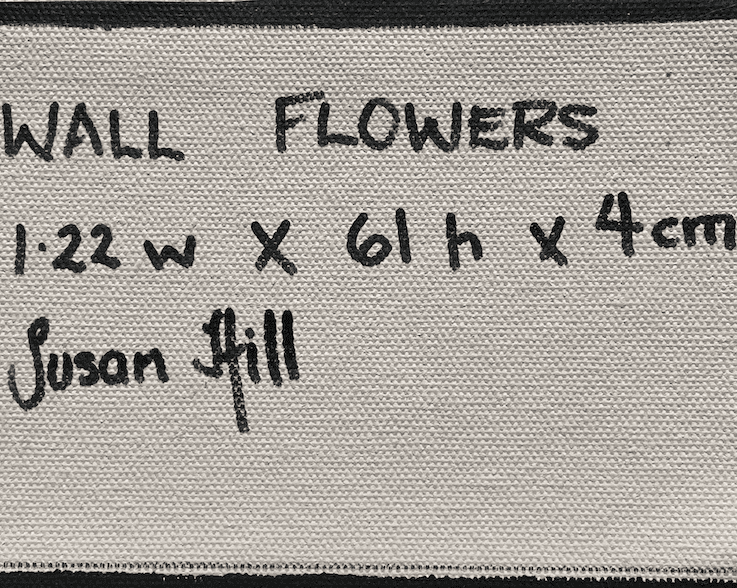 WALL FLOWERS
1.22 w x 61 h x 4cm
Susan Hill